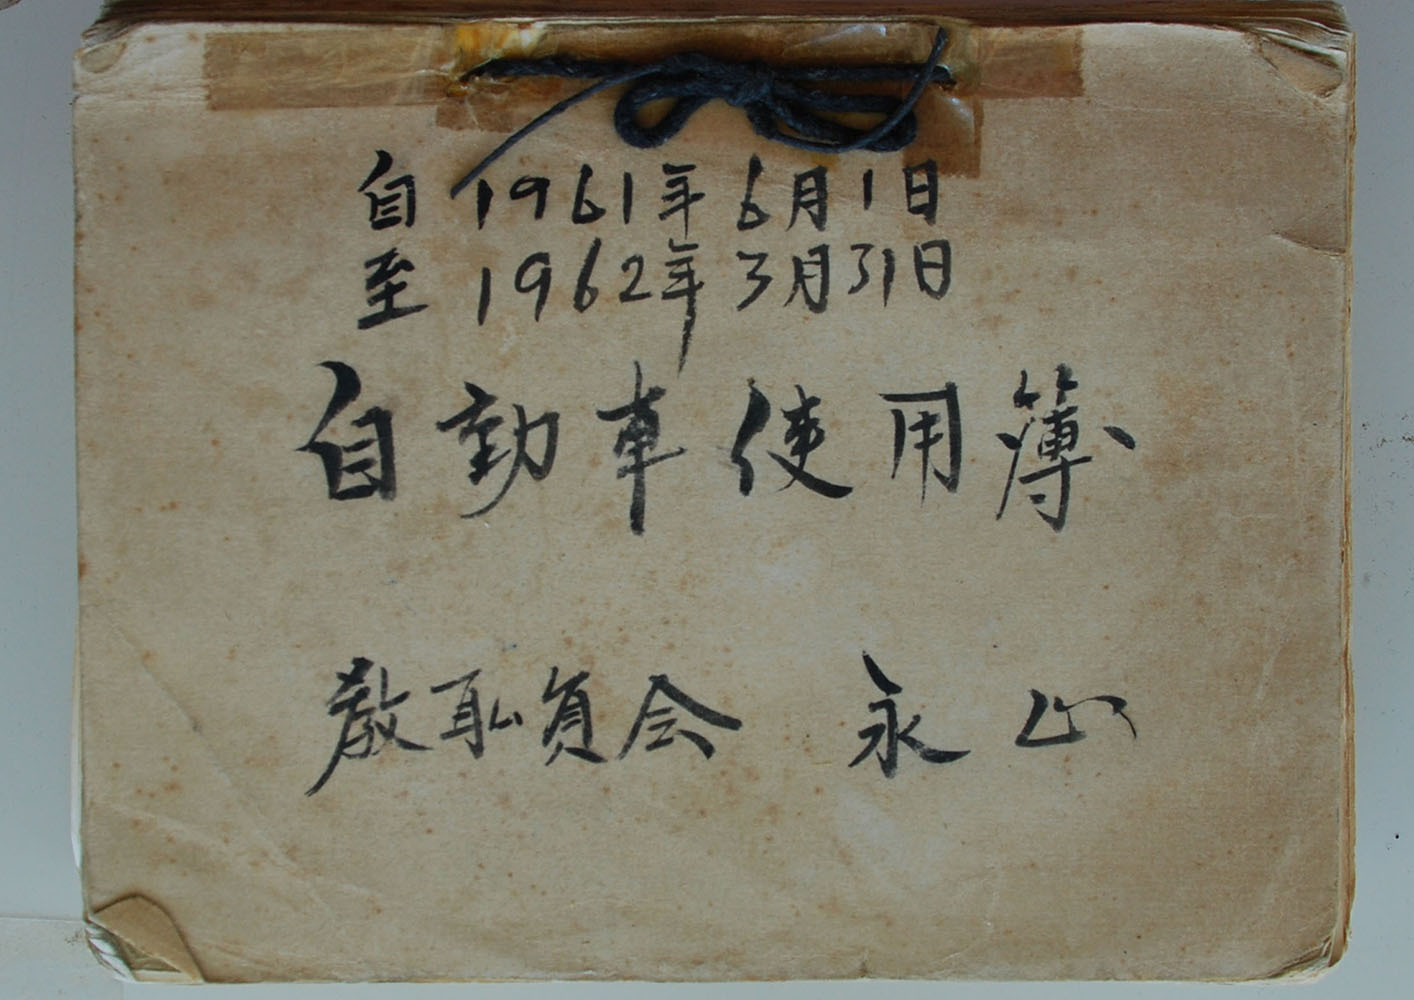 自 1961年 6月 1日
至 1962年 3月31日
自動車使用簿
教耺員会 永山